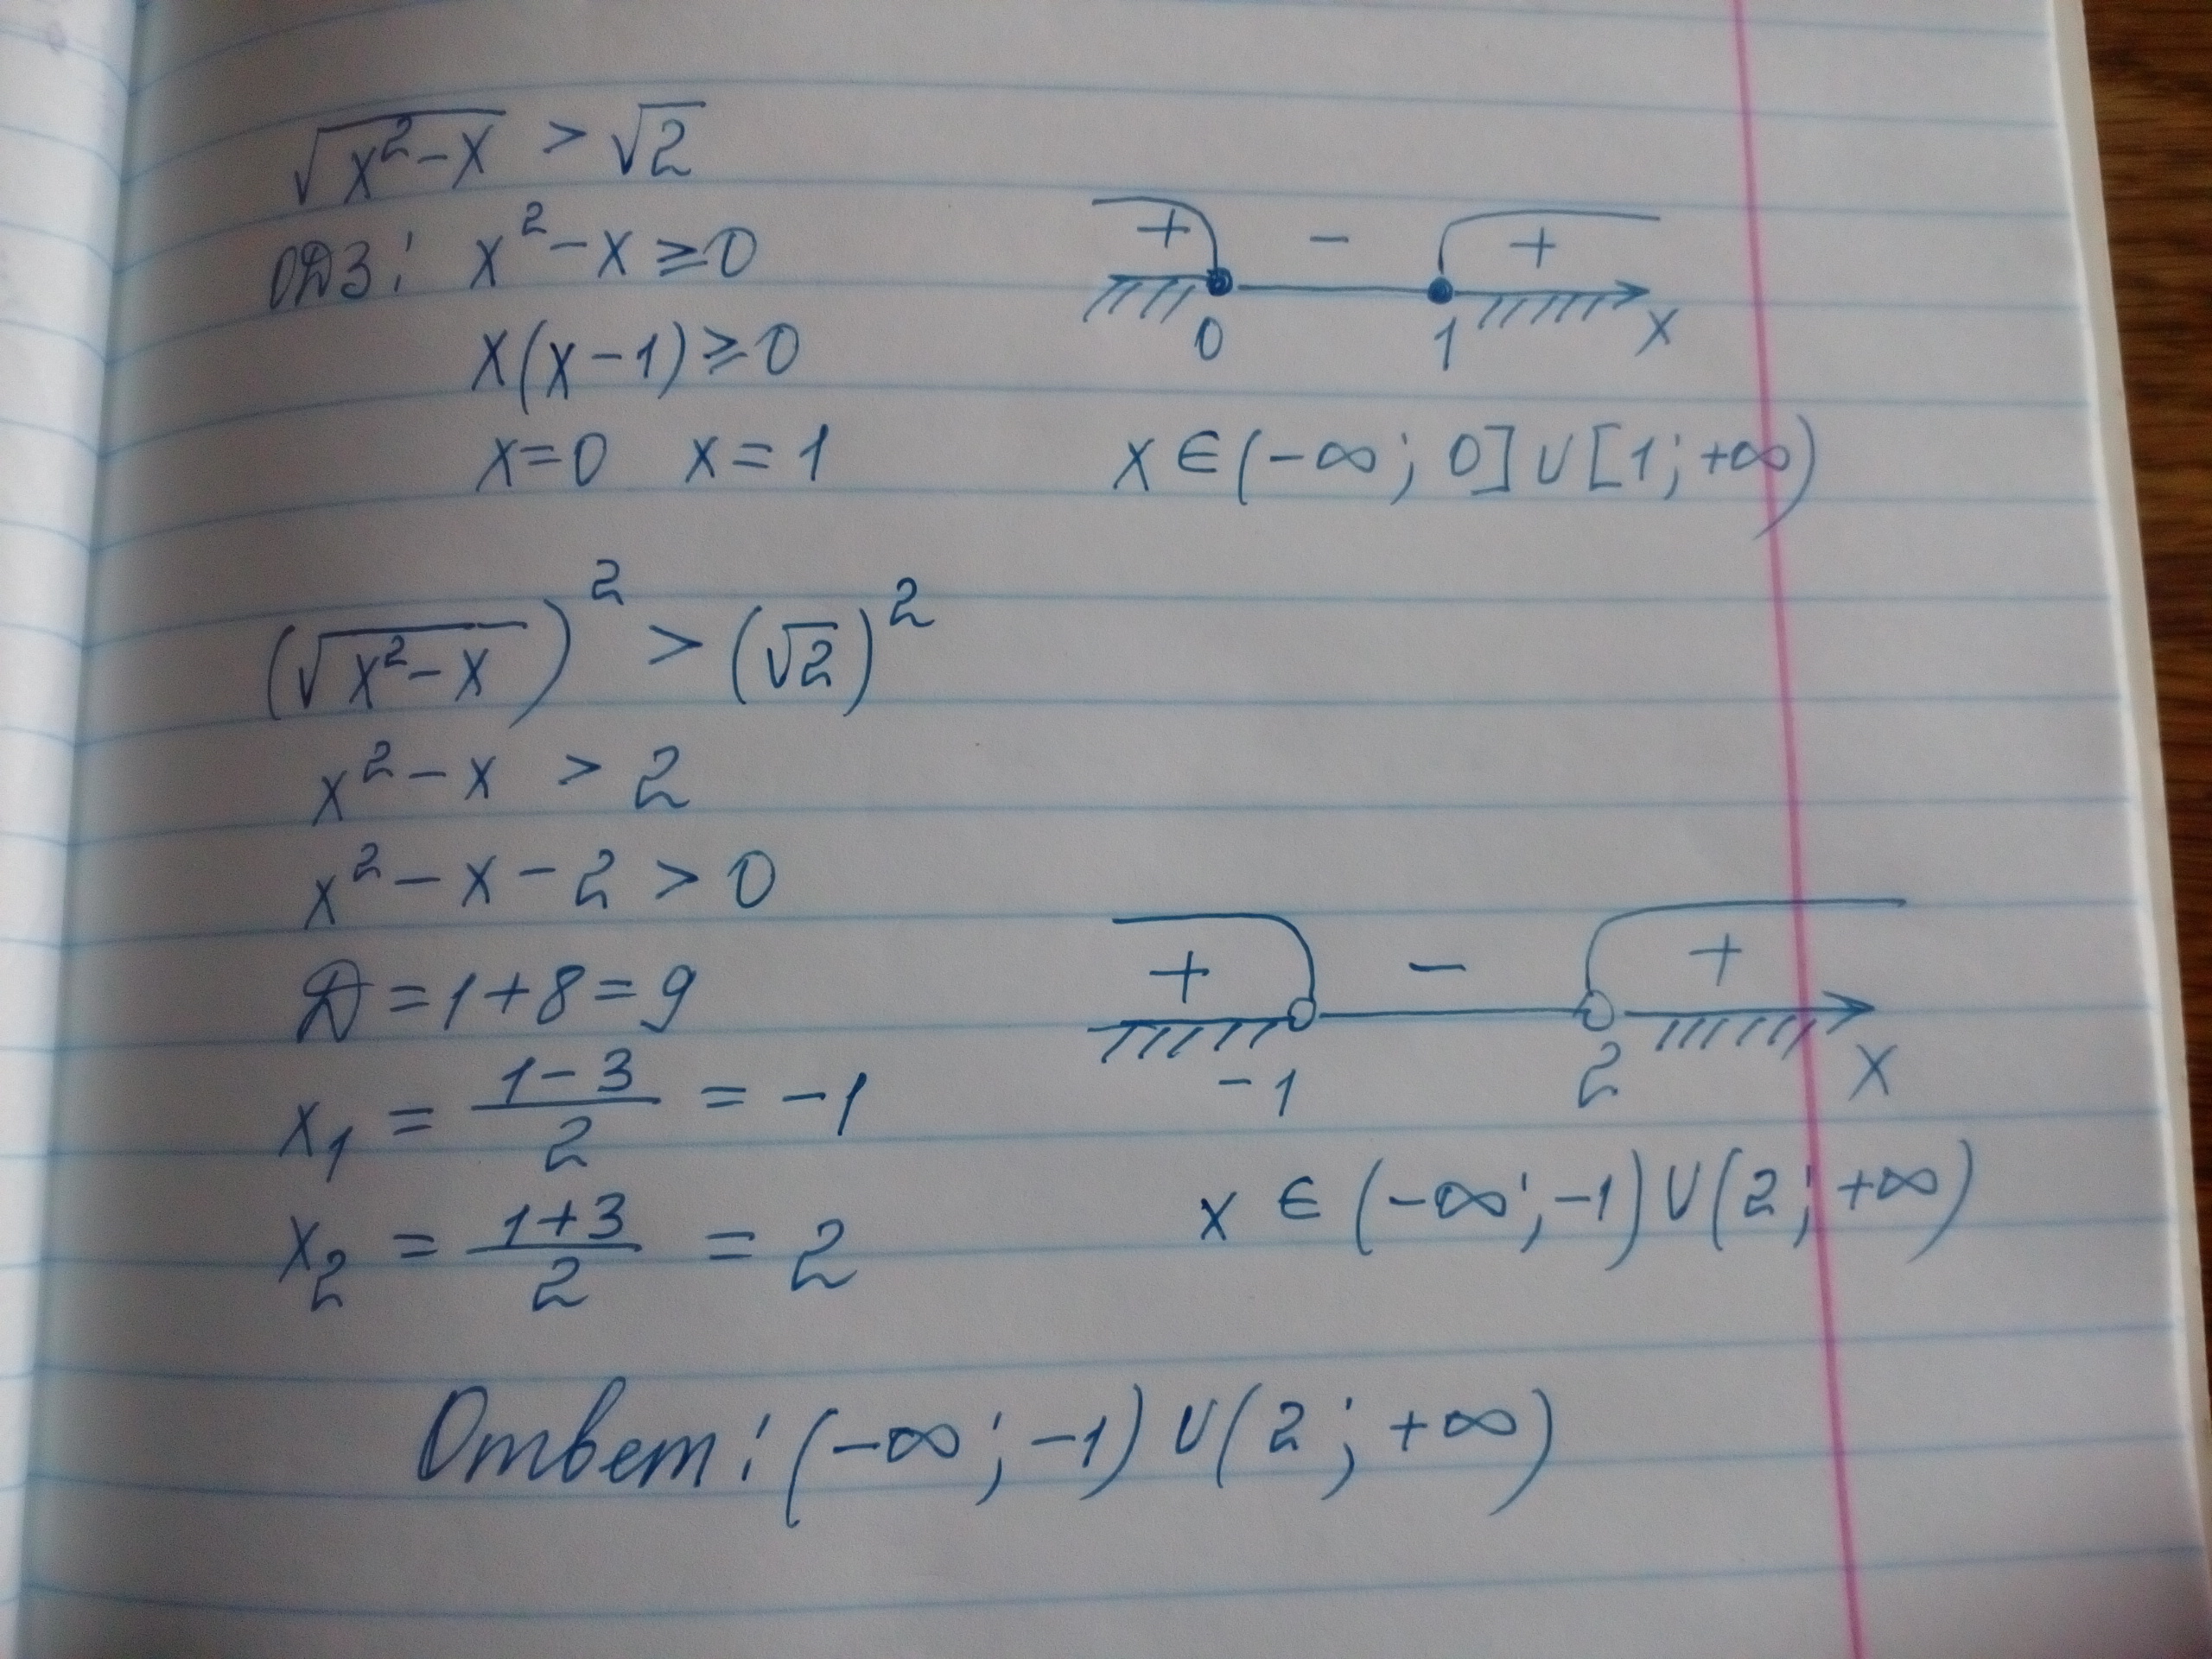 √(x² − x) > √2
ОДЗ: x² − x ≥ 0
x(x − 1) ≥ 0
x = 0 x = 1
+ − +
0 1 x
x ∈ (−∞; 0] ∪ [1; +∞)
(√(x² − x))² > (√2)²
x² − x > 2
x² − x − 2 > 0
D = 1 + 8 = 9
x₁ = (1 − 3)/2 = −1
x₂ = (1 + 3)/2 = 2
+ − +
−1 2 x
x ∈ (−∞; −1) ∪ (2; +∞)
Ответ: (−∞; −1) ∪ (2; +∞)